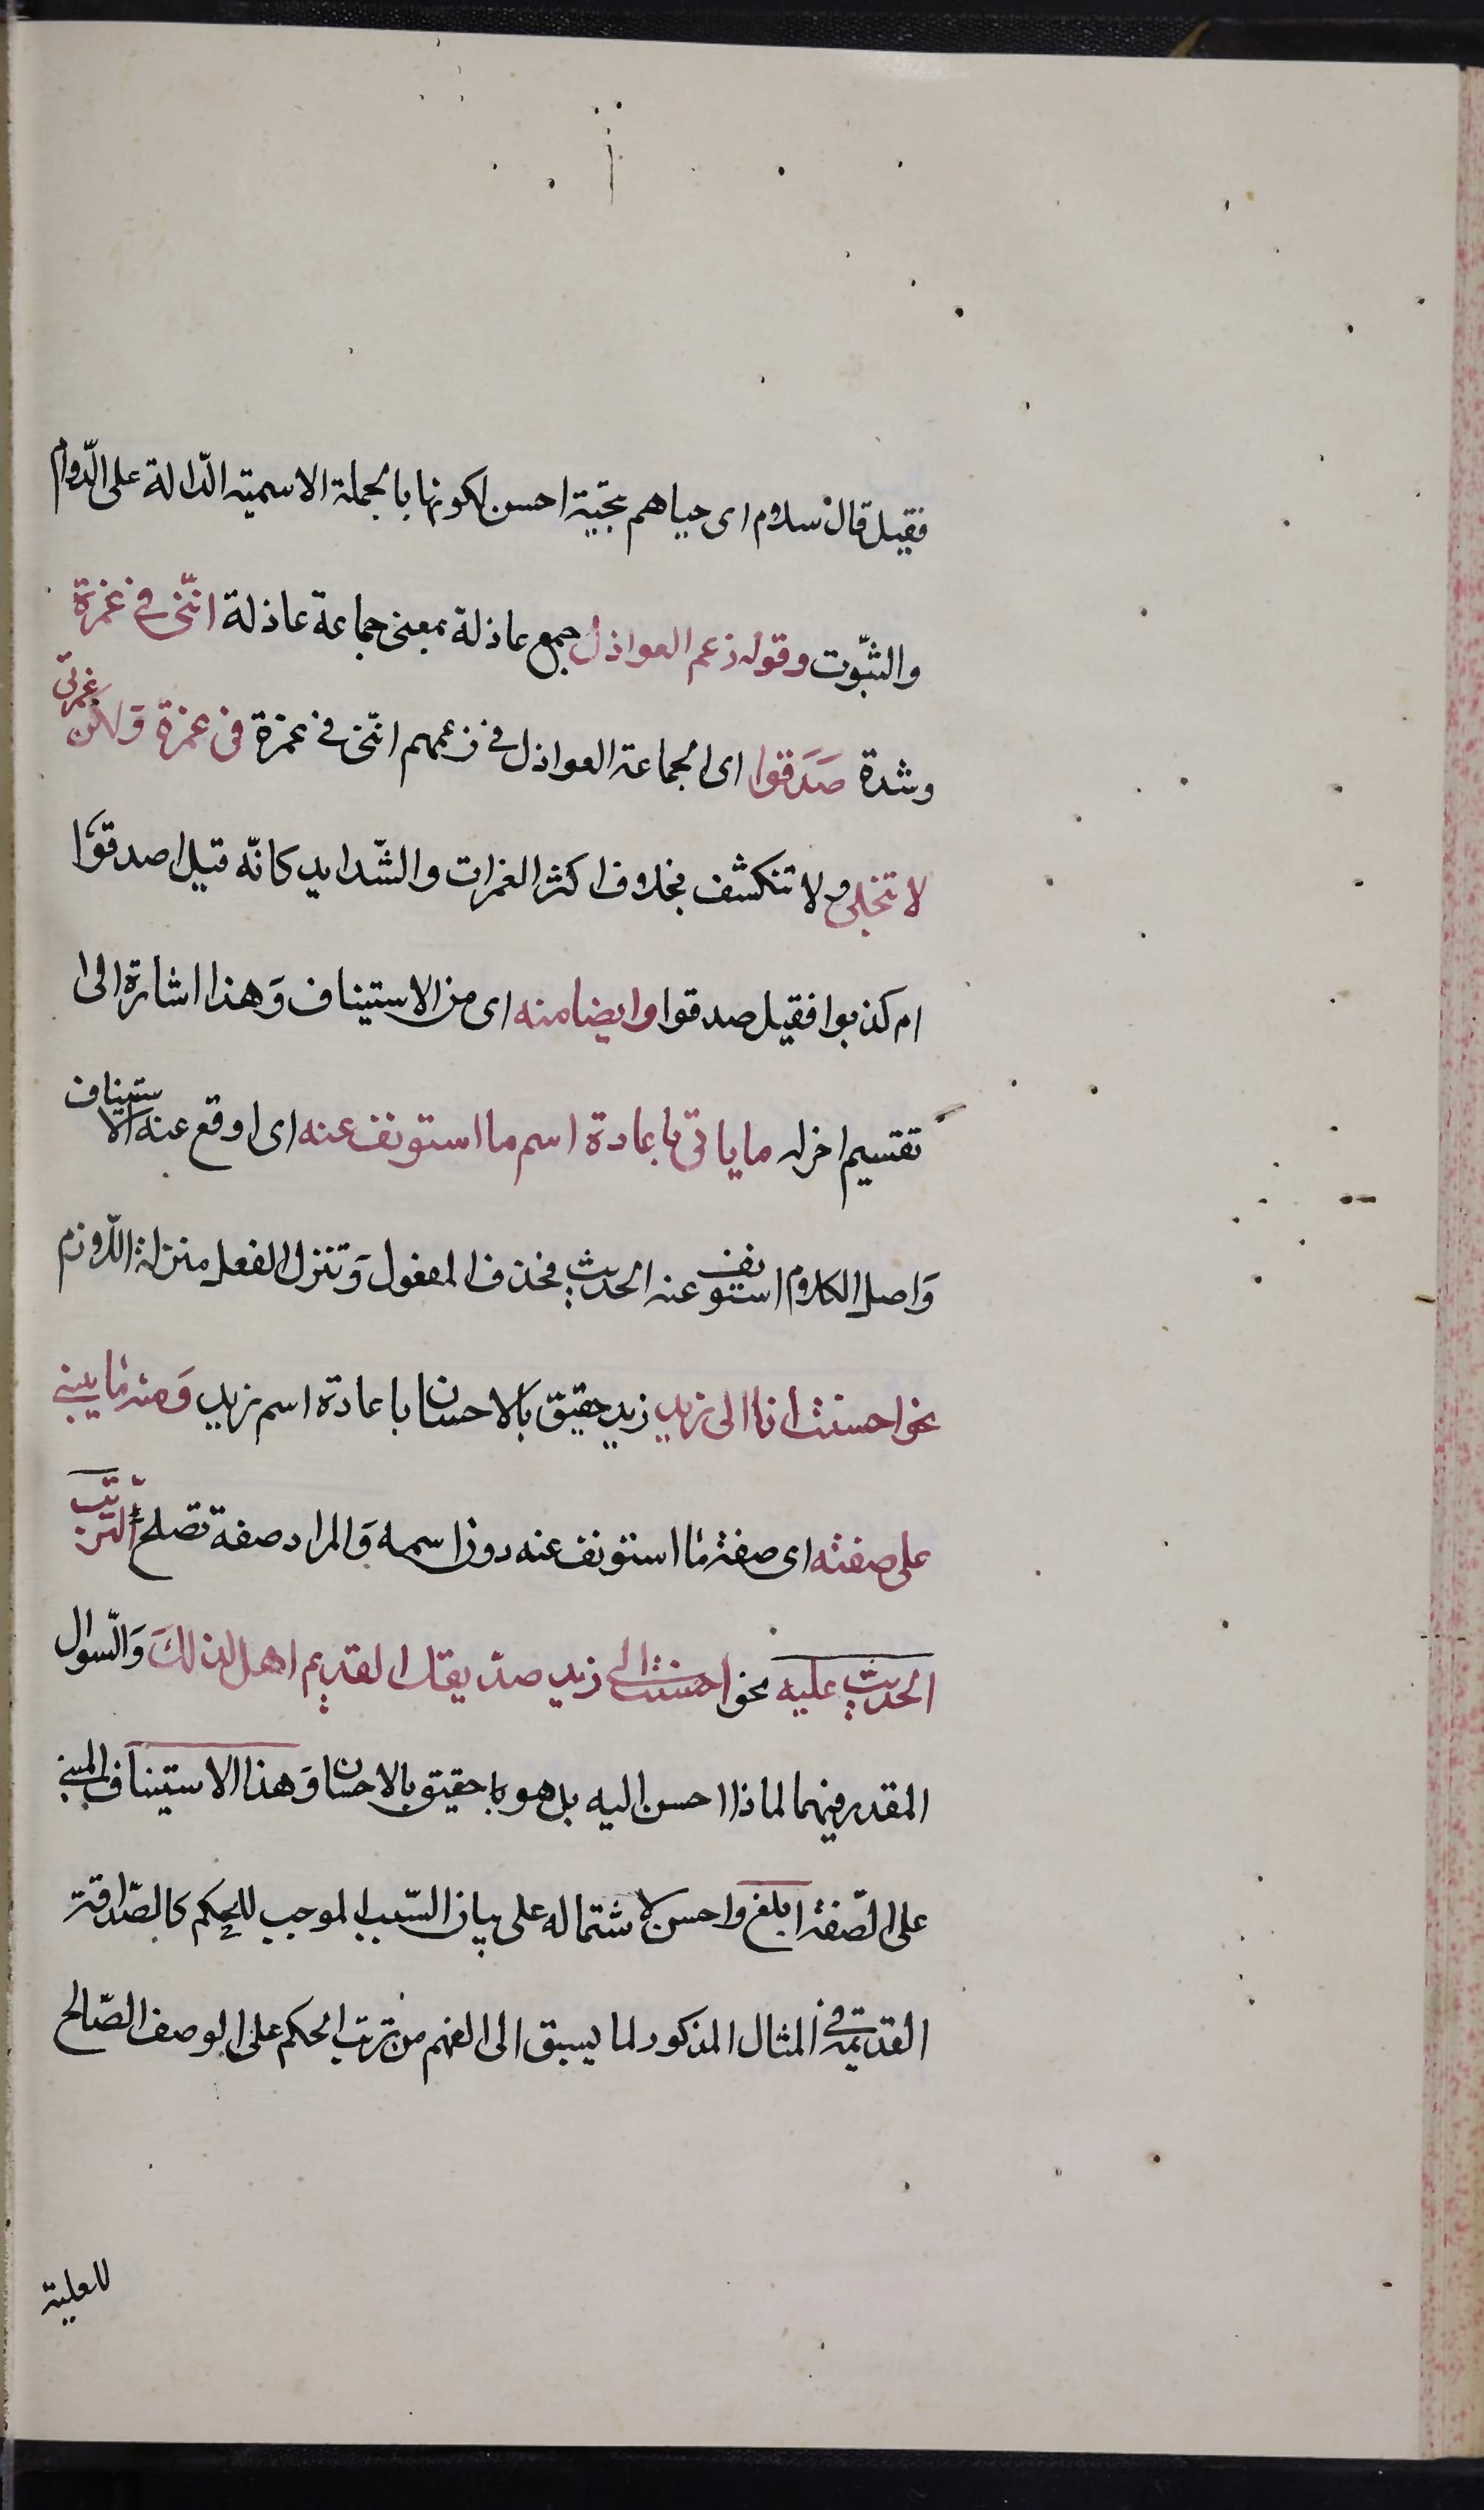 فقيل قال سلام اى حياهم بتحيّة احسن لكونها بالجملة الاسمية الدّالة على الدّوام
والثبّوت وقوله زعم العواذل جمع عاذلة بمعنى جماعة عاذلة انّنى فى غمرة
وشدة صَدَقوا اى الجماعة العواذل فى زعمهم انّنى فى غمرة فى غمرة وَلكن غمرتى
لا تنجلى ولا تنكشف بخلاف اكثر الغمرات والشّدايد كانّه قيل اصدقوا
ام كذبوا فقيل صدقوا وايضا منه اى من الاستيناف وَهذا اشارة الى
تقسيم اخر له ما ياتى باعادة اسم ما استونف عنه اى اوقع عنه الاستيناف
وَاصل الكلام استونف عنه الحديث فحذف المفعول وَتنزل الفعل منزلة اللّازم
نحو احسنت انا الى زيد زيد حقيق بالاحسان باعادة اسم زيد وَمنه ما يبنى
على صفته اى صفة ما استونف عنه دون اسمه وَالمراد صفة تصلح لترتّب
الحديث عليه نحو احسنت الى زيد صدّيقك القديم اهل لذلكَ وَالسّوال
المقدر فيهما لماذا احسن اليه بل هو حقيق بالاحسان وَهذا الاستيناف المبنى
على الصّفة ابلغ واحسن لاشتماله على بيان السّبب الموجب للحكم كالصّداقة
القديمة فى المثال المذكور لما يسبق الى الفهم من ترتب الحكم على الوصف الصّالح
للعلية